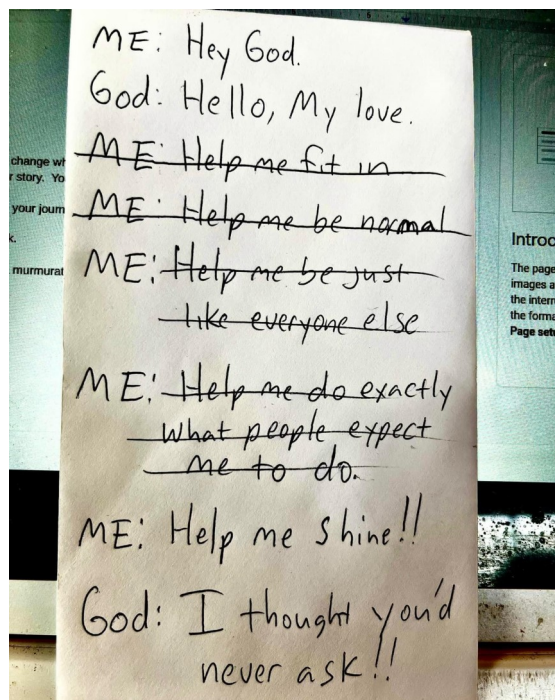 ME: Hey God.
God: Hello, My love.
ME: Help me fit in
ME: Help me be normal
ME: Help me be just
like everyone else
ME: Help me do exactly
what people expect
me to do.
ME: Help me shine!!
God: I thought you'd
never ask!!
change
r story. Yo
your journ
k.
murmurat
Introd
The page
images a
the intern
the forma
Page set